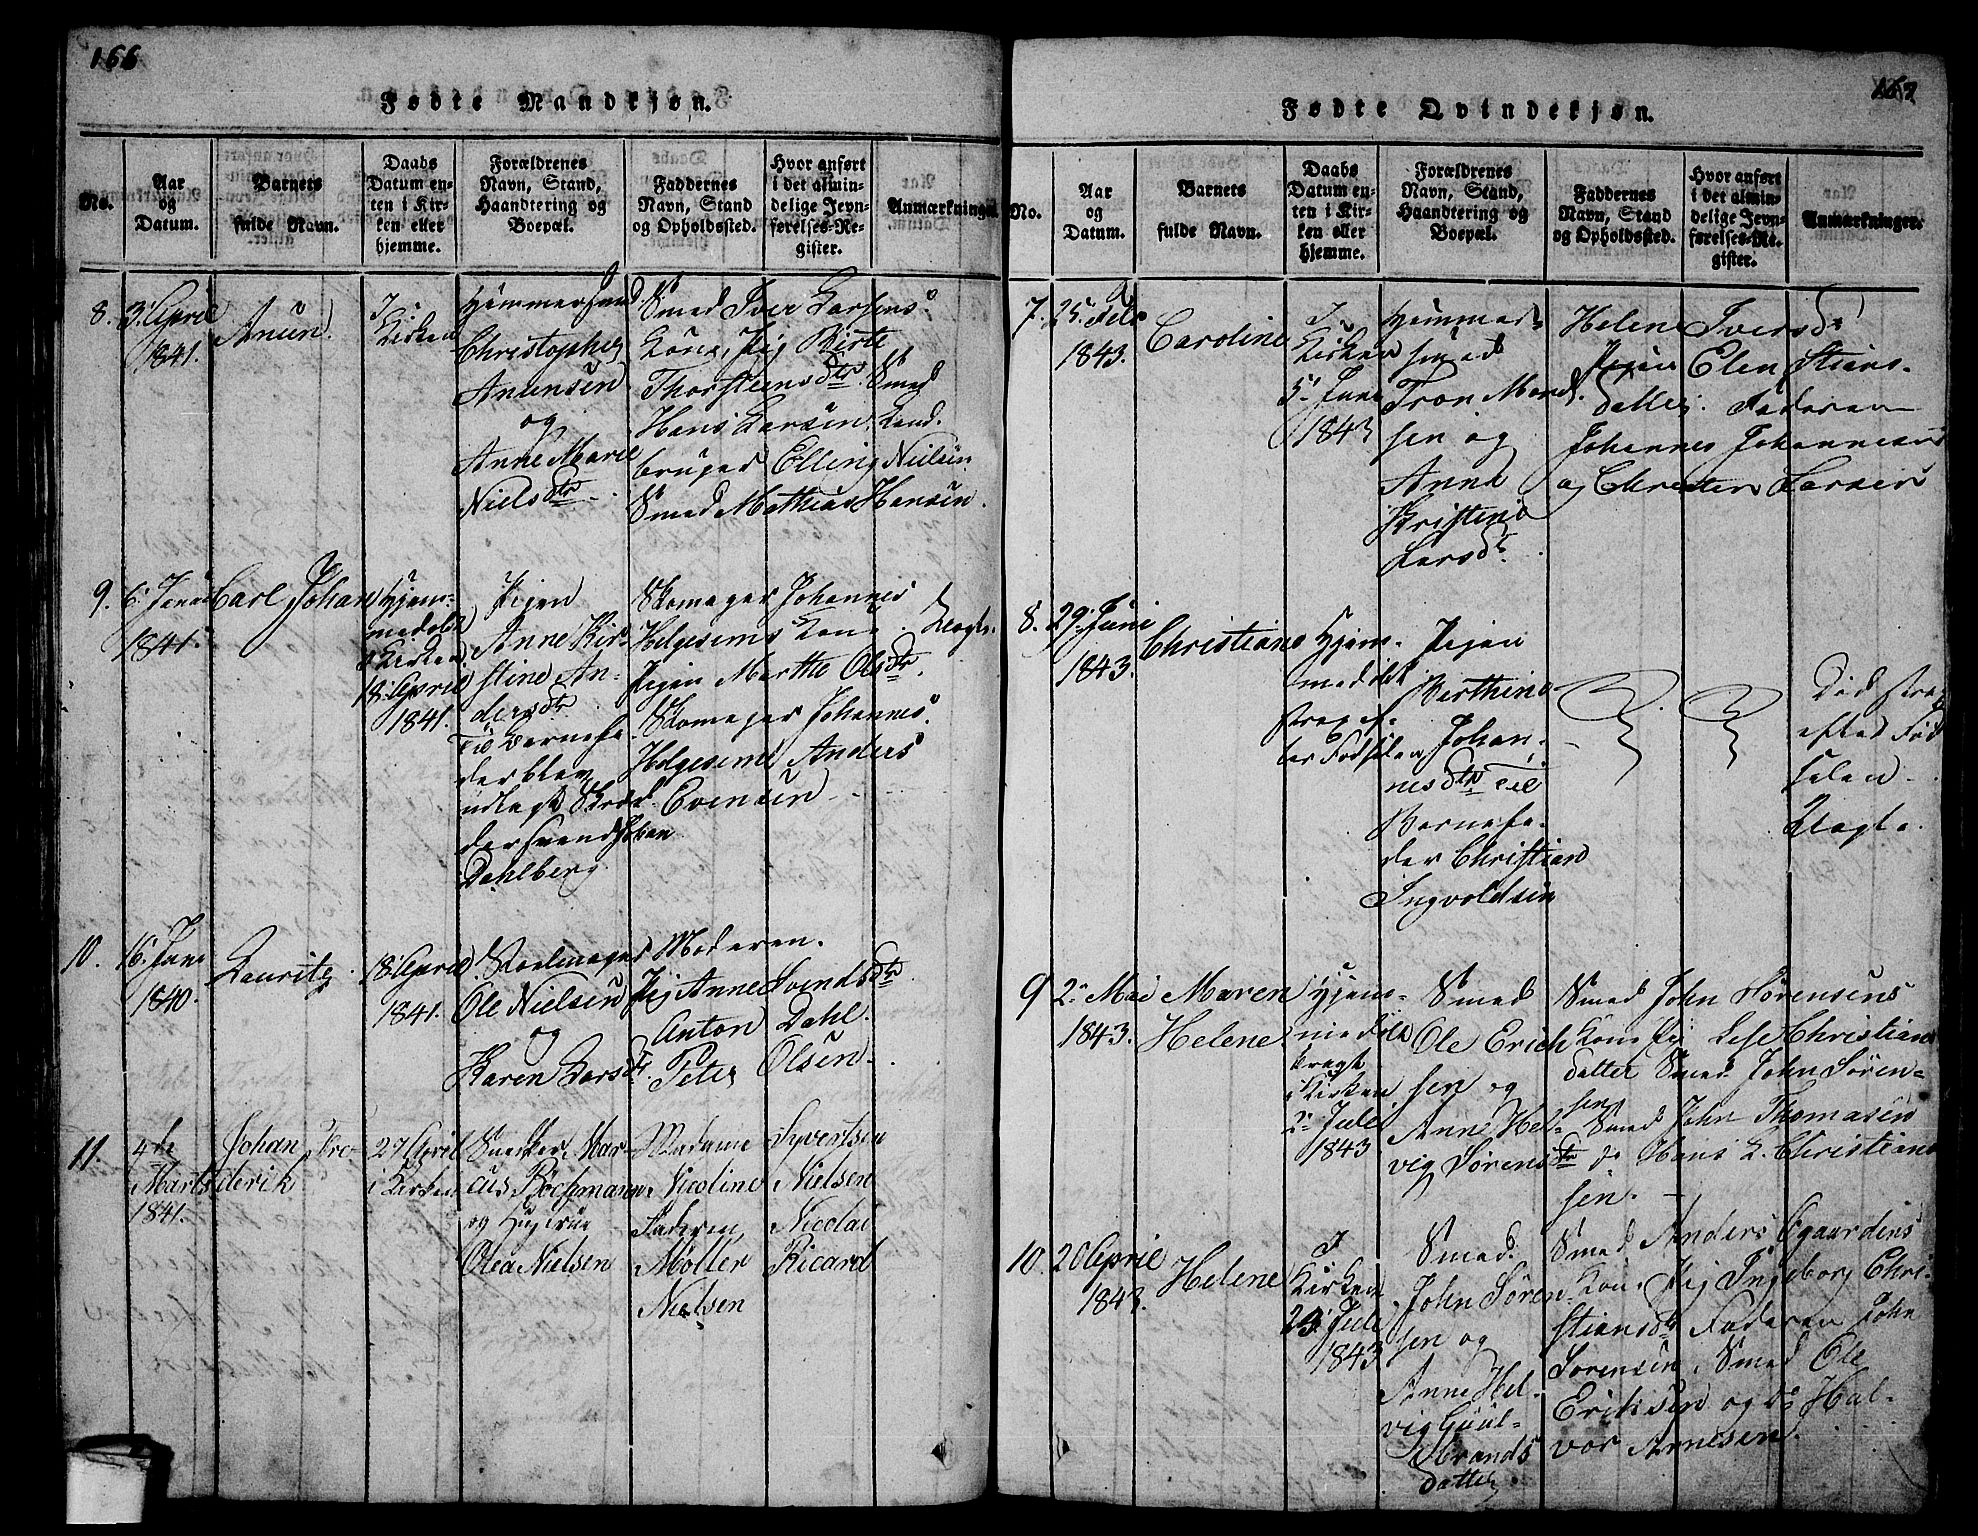 166
Fødte Mandkjøn.
No.
Aar
og
Datum.
Barnets
fulde Navn.
Daabs
Datum en-
ten i Kir-
ken eller
hjemme.
Forældrenes
Navn, Stand,
Haandtering og
Boepæl.
Faddernes
Navn, Stand
og Opholdssted.
Hvor anført
i det almin-
delige Jevn-
førelses-Re-
gister.
Anmærkninger.
8.
3. April
1841.
Anun.
I
Kirken
Hammersmed
Christopher
Anunsen
og
Anne Marie
Niels dtr
Smed Iver Larsens
Kone, Pig Birte
Thorsteens dtr. Smed
Hans Larsen. Land.
bruger Elling Nielsen
Smed Mathias Hansen.
9.
6. Janua
1841.
Carl Johan
Hjem-
medøbt
i Kirken.
18. April
1841.
Pigen
Anne Kir-
stine An-
dersdtr
Til Barnefa-
der blev
udlagt Skræd
der Svend Johan
Dahlberg
Skomager Johannes
Helgesens Kone.
Pigen Marthe Olsdtr.
Skomager Johannes
Helgesen Anders
Evensen
Uægte.
10.
16. Jun
1840.
Lauritz.
18. April
1841.
Ole Nielsen
og
Karen Larsdtr.
Moderen.
Pig Anne Svendsdtr
Anton Dahl.
Peter Olsen.
11.
4de
Marts
1841.
Johan Fre-
derik
27 April
i Kirken
Snedker Mar-
cus Bochmann
og Hustrue
Olea Nielsen
Madame Syvertsen
Nicoline Nielsen
Faderen, Nicolai
Møller Ricard
Nielsen
167
Fødte Qvindekjøn.
No.
Aar
og
Datum.
Barnets
fulde Navn.
Daabs
Datum en-
ten i Kir-
ken eller
hjemme.
Forældrenes
Navn, Stand,
Haandtering og
Boepæl.
Faddernes
Navn, Stand
og Opholdssted.
Hvor anført
i det almin-
delige Jevn-
førelses-Re-
gister.
Anmærkninger.
7.
25. Feb
1843.
Caroline
I
Kirken
5. Juni
1843
Hammer-
smed
Tron Mond
sen og
Anne
Kristine
Larsdt.
Helene Iversdt
Pigen Elen Stians-
datter. Faderen
Johannes Johannesen
og Christen Larsen
8.
29. Juni
1843.
Christiane
Hjem-
medøbt
strax ef-
ter Fødselen
Pigen
Berthine
Johan-
nesdtr Til
Barnefa-
der Christian
Ingvoldsen
Død strax
efter Fød
selen.
Uægte.
9
2. Mai
1843.
Maren
Helene
Hjem-
medøbt
bragt
i Kirken
2. Juli
1843
Smed
Ole Erich
sen og
Anne Hel-
vig Sørens dtr
Smed John Sørensens
Kone Pig Lise Christians
datter Smed John Søren-
sen Smed John Thomasen
do Hans L. Christian
sen.
10.
20 April
1843.
Helene
I
Kirken
23. Juli
1843
Smed.
John Søren-
sen og
Anne Hel-
vig Guul-
brands
datter
Smed Anders Ogaardens
Kone. Pig Ingeborg Chri-
stiansdt Faderen John
Sørensen, Smed Ole
Eriksen og do Hal-
vor Arnesen.